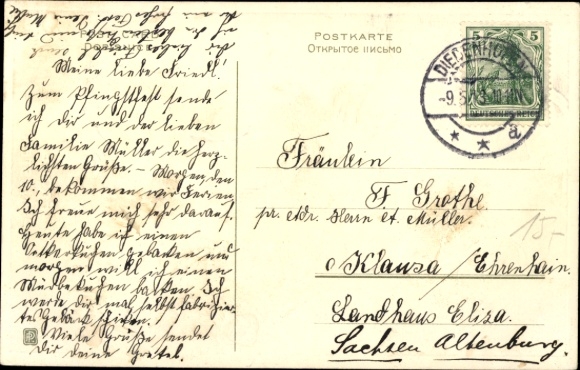 POSTKARTE
Открытое письмо
5 5
DIEDENHOFEN
DEUTSCHES REICH
* * a
Meine liebe Friedl!
Zum Pfingstfest sende
ich dir und der lieben
Familie Müller die herz-
lichsten Grüße. – Morgen, den
10., bekommen wir Ferien.
Ich freue mich sehr darauf.
Heute habe ich einen
kuchen gebacken und
morgen will ich einen
kuchen backen. Ich
werde dir mal selbst fabrizier-
tes Gebäck schicken.
Viele Grüße sendet
Dir deine Gretel.
Fräulein
F. Grothe
pr. adr. Herrn A. Müller.
Klausa / Ehrenhain.
Landhaus Eliza.
Sachsen Altenburg.
15.-